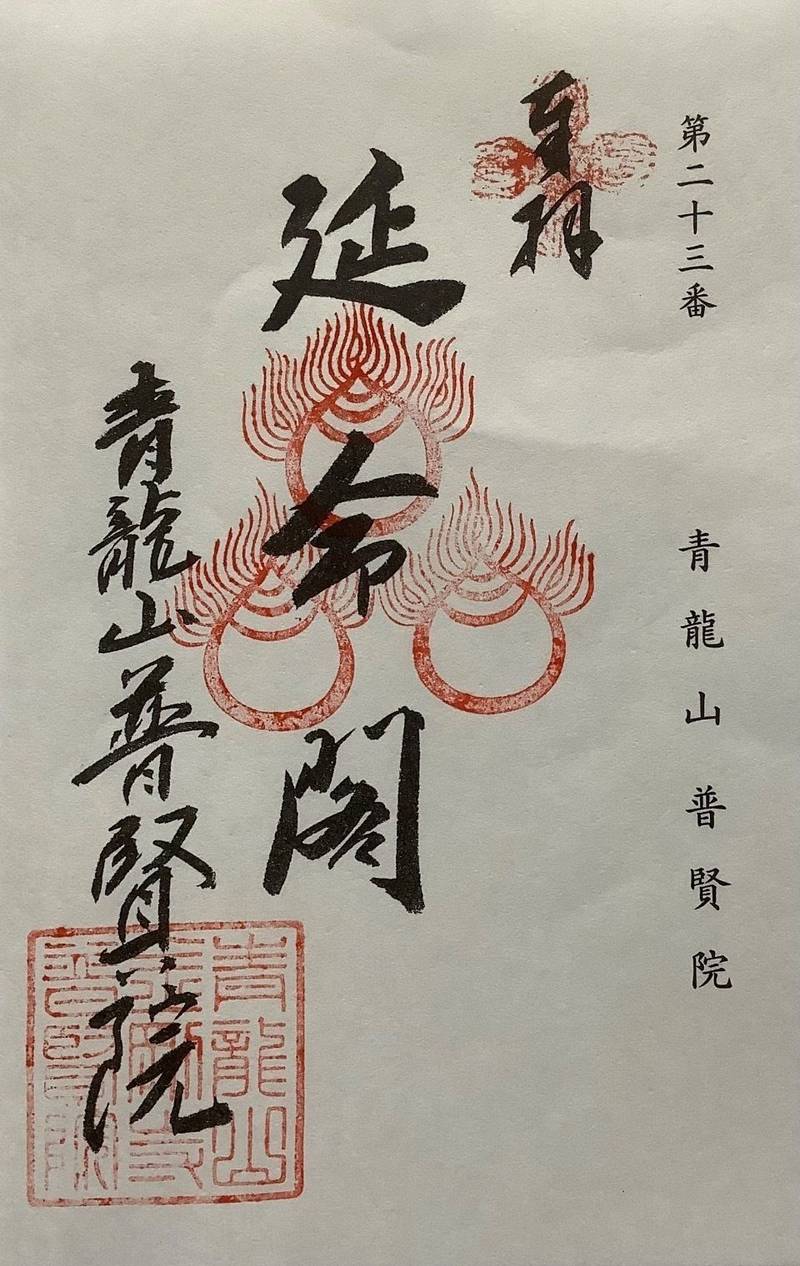 第二十三番
青龍山普賢院
奉拝
延命閣
青龍山普賢院
青龍山
普賢院